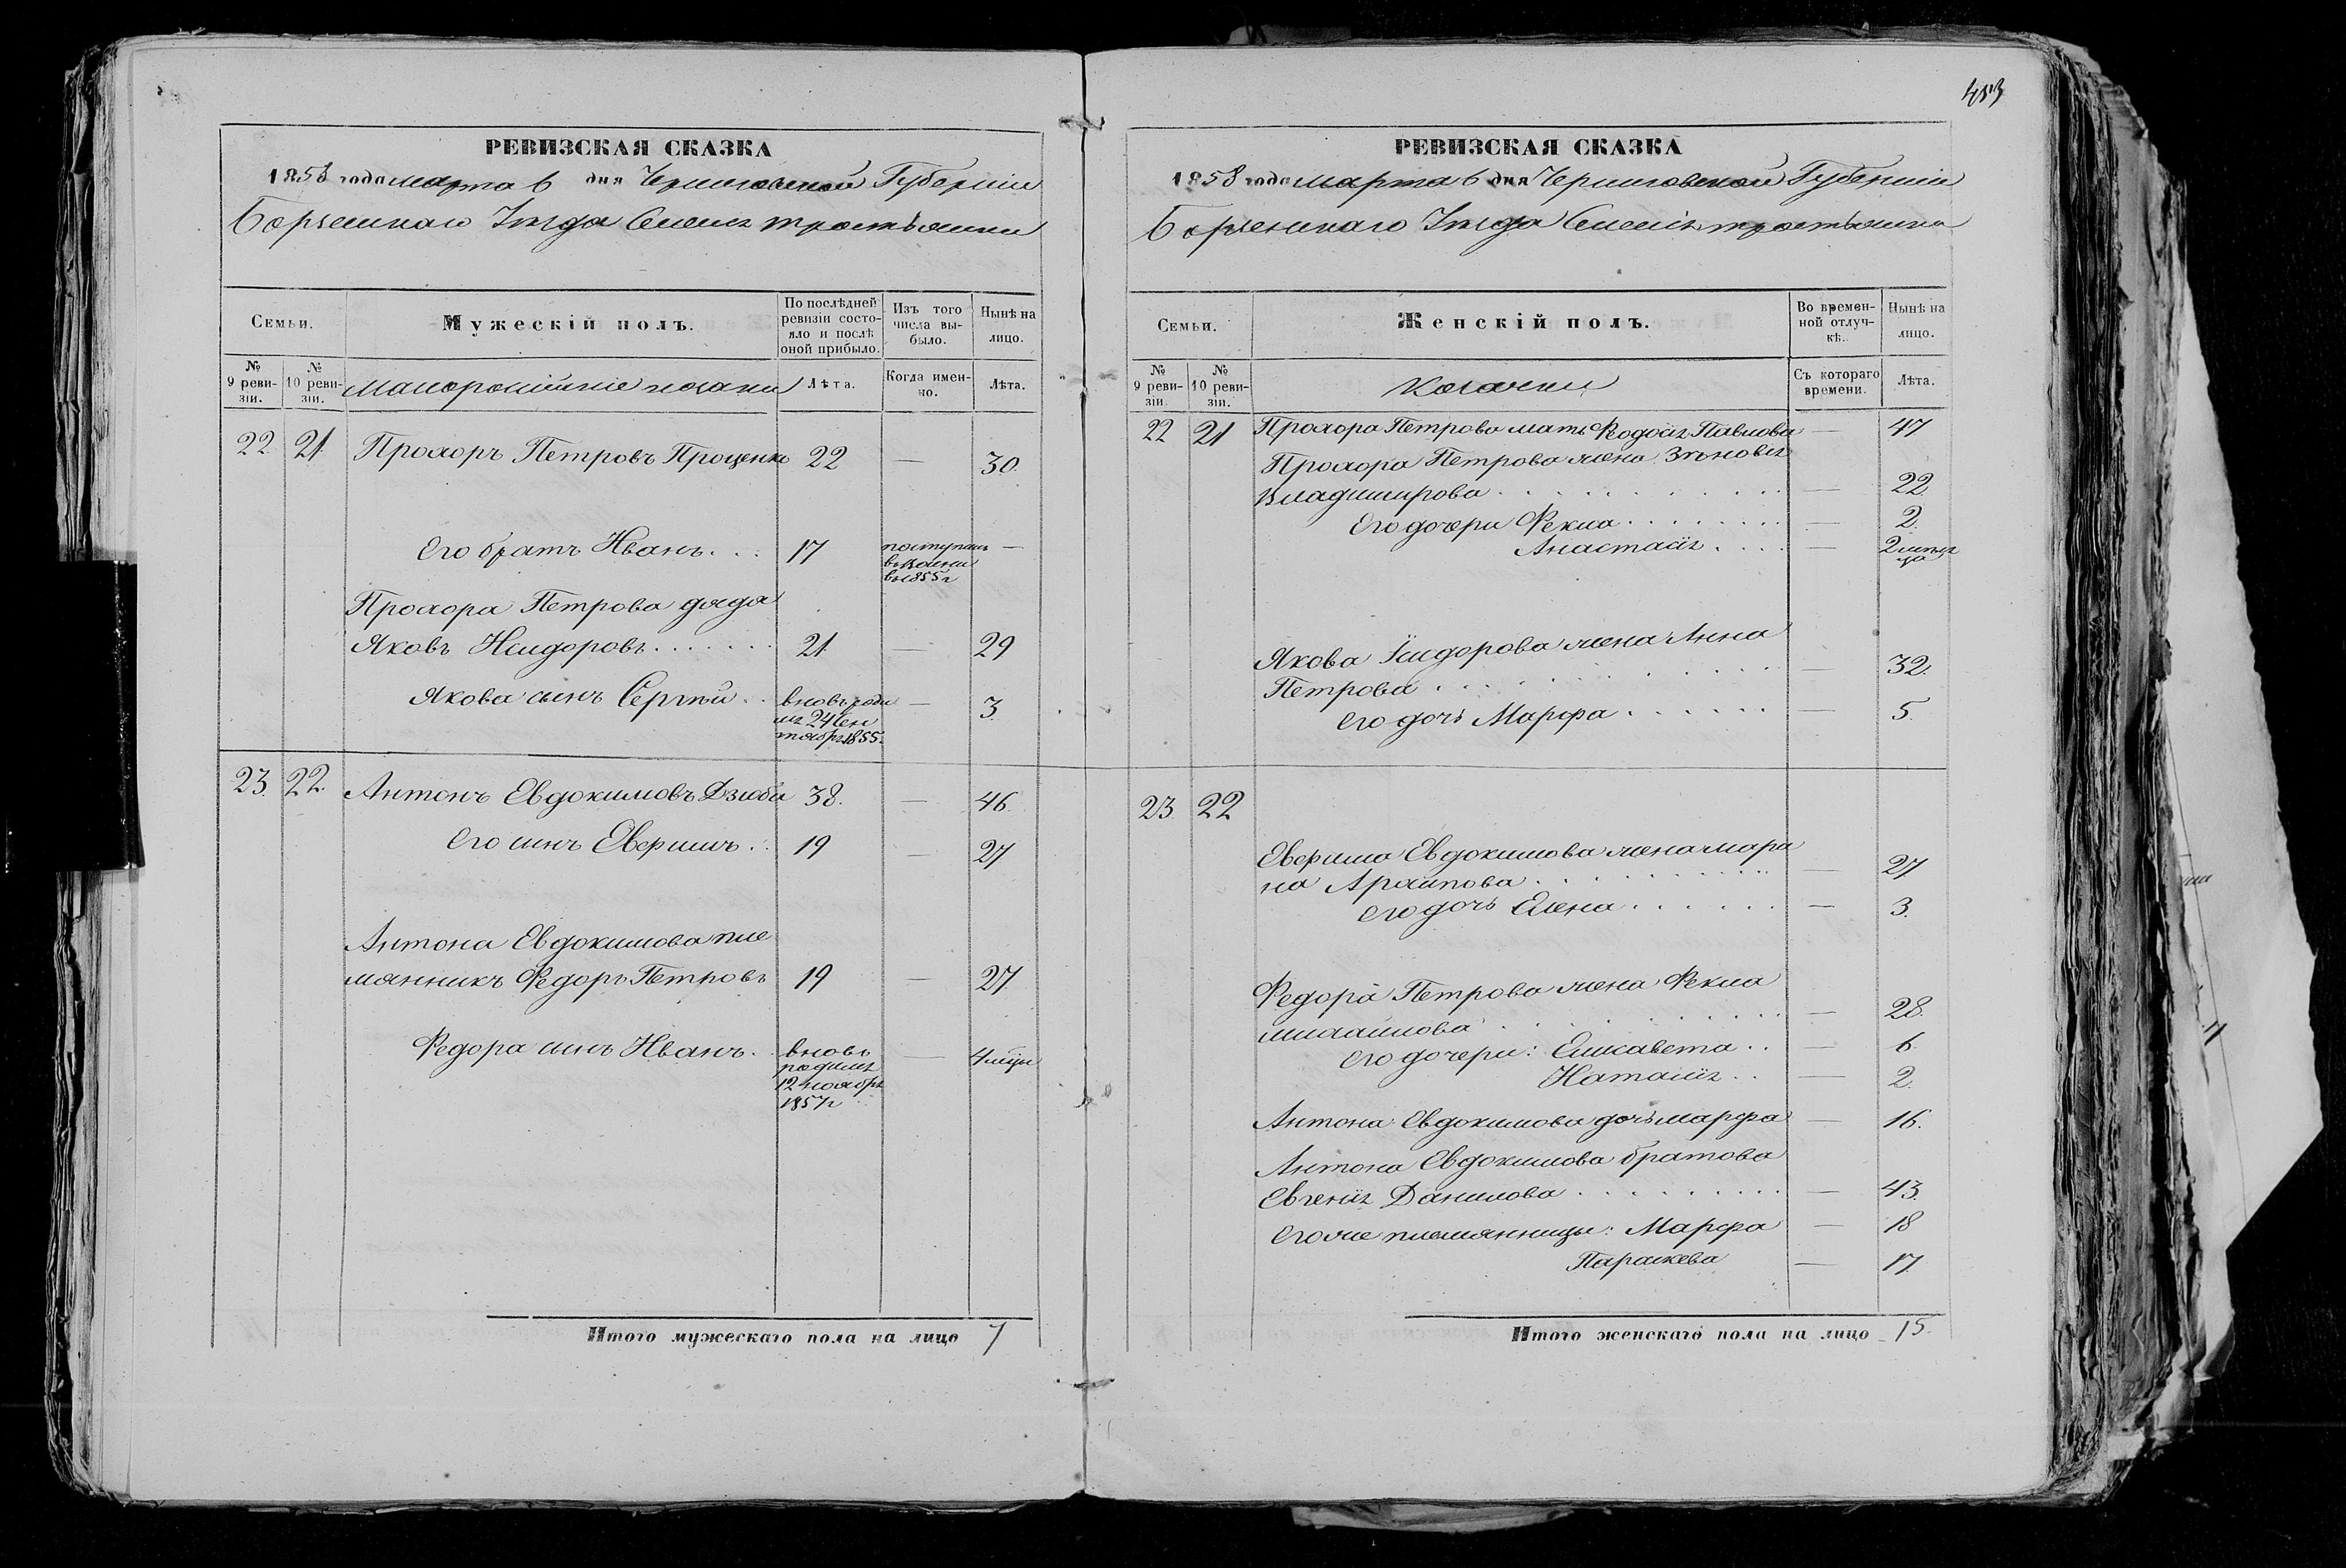 453
РЕВИЗСКАЯ СКАЗКА
1858 года марта 6 дня Черниговской Губерніи
Борзенскаго Уезда Селенія Тростянки
Семьи.
Мужескій полъ.
По послѣдней ревизіи состояло и послѣ оной прибыло.
Изъ того числа выбыло.
Нынѣ на лицо.
№ 9 ревизіи.
№ 10 ревизіи.
Малороссійскіе козаки
Лѣта.
Когда именно.
Лѣта.
22 21 Прохоръ Петровъ Проценко 22 — 30
Его братъ Иванъ . . . 17 поступилъ —
въ
въ 1855 г
Прохора Петрова дядя
Яковъ Исидоровъ . . . . . . . 21 — 29
Якова сынъ Сергѣй . . вновь роди — 3.
лся 24 Сен
тября 1855.
23. 22. Антонъ Евдокимовъ Дзюба 38. — 46.
Его сынъ . . 19 — 27
Антона Евдокимова пле
мянникъ Федоръ Петровъ 19 — 27
Федора сынъ Иванъ . вновь — 4 мцы
родился
12 ноября
1857 г
Итого мужескаго пола на лицо 7
РЕВИЗСКАЯ СКАЗКА
1858 года марта 6 дня Черниговской Губерніи
Борзенскаго Уезда Селенія Тростянки
Семьи.
Женскій полъ.
Во временной отлучкѣ.
Нынѣ на лицо.
№ 9 ревизіи.
№ 10 ревизіи.
Козачки
Съ котораго времени.
Лѣта.
22 21 Прохора Петрова мать Феодосія Павлова — 47
Прохора Петрова жена Зѣновія
Владимирова . . . . . . . . . — 22
Его дочери Фекла . . . . . . . — 2.
Анастасія . . . . — 2 меся
ца
Якова Ісидорова жена Анна
Петрова . . . . . . . . . . — 32.
Его дочь Марфа . . . . . . — 5.
23. 22
Евдокимова жена Мари
на Архипова . . . . . . . . . — 27
его дочь Елена . . . . . . — 3.
Федора Петрова жена Фекла
Михайлова . . . . . . . . . — 28.
его дочери: Елисавета . . — 6.
Наталія . . — 2.
Антона Евдокимова дочь Марфа — 16.
Антона Евдокимова братова
Евгенія Данилова . . . . . . . . . — 43.
его же племянницы: Марфа — 18
Параскева — 17.
Итого женскаго пола на лицо 15.